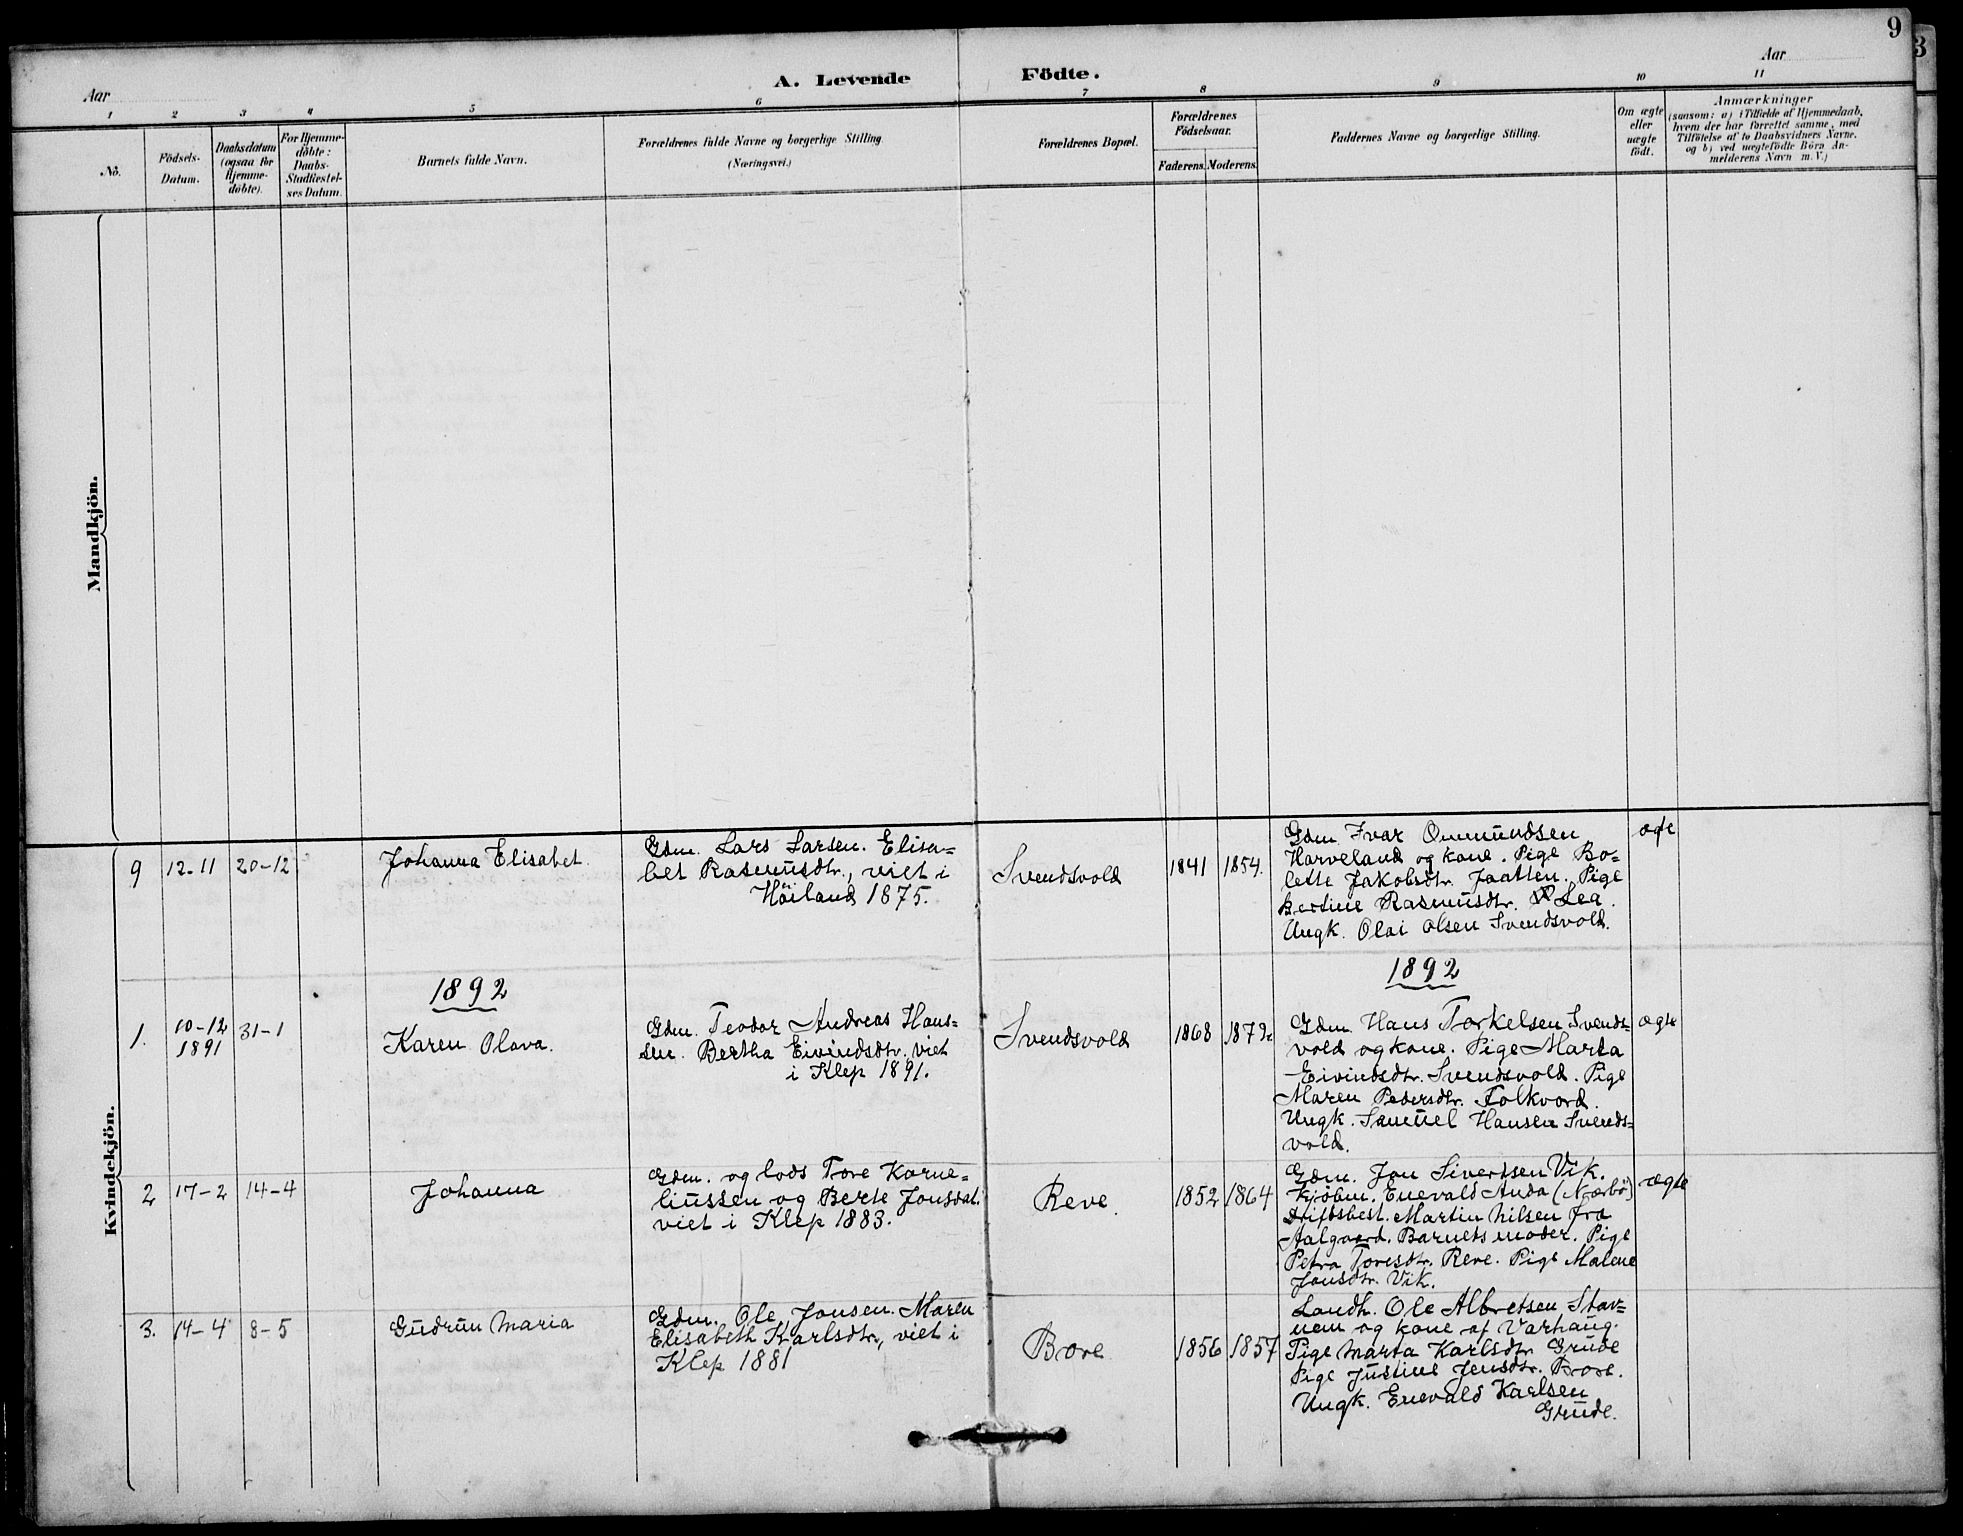 9
3
A. Levende Födte.
Aar
Aar
1 2 3 4 5 6 7 8 9 10 11
No.
Födsels-
Datum.
Daabsdatum
(ogsaa for
Hjemme-
döbte).
For Hjemme-
döbte:
Daabs-
Stadfæstel-
ses Datum.
Barnets fulde Navn.
Forældrenes fulde Navne og borgerlige Stilling.
(Næringsvei.)
Forældrenes Bopæl.
Forældrenes
Födselsaar.
Faderens. Moderens.
Faddernes Navne og borgerlige Stilling.
Om ægte
eller
uægte
födt.
Anmærkninger
(saasom: a) i Tilfælde af Hjemmedaab,
hvem der har forrettet samme, med
Tilföielse af to Daabsvidners Navne,
og b) ved uægtefödte Börn An-
melderens Navn m. V.)
Mandkjön.
Kvindekjön.
9
12-11
20-12
Johanna Elisabet
Gdm. Lars Larsen. Elisa=
bet Rasmusdtr., viet i
Höiland 1875.
Svendsvold
1841
1854.
Gdm Ivar Ommundsen
Harveland og kone. Pige Bo=
lette Jakobsdtr. Jaatten. Pige
Bertine Rasmusdtr. Lea.
Ungk. Olai Olsen Svendsvold.
ægte
1892
1892
1.
10-12
1891
31-1
Karen Olava.
Gdm. Teodor Andreas Han=
sen. Bertha Eivindsdtr. viet
i Klep 1891.
Svendsvold
1868
1872
Gdm. Hans Torkelsen Svends=
vold og kone. Pige Marta
Eivindsdtr. Svendsvold. Pige
Maren Pedersdtr. Folkvord.
Ungk. Samuel Hansen Svends=
vold.
ægte
2
17-2
14-4
Johanna
Gdm. og lods Tore Korne=
liussen og Berte Jonsdat.
viet i Klep 1883.
Reve.
1852
1864
Gdm. Jon Sivertsen Vik.
Kjöbm. Enevald Anda (Nærbö)
Driftsbest. Martin Nilsen fra
Aalgaard. Barnets moder. Pige
Petra Toresdtr. Reve. Pige Malene
Jonsdtr. Vik.
ægte
3.
14-4
8-5
Gudrun Maria
Gdm. Ole Jonsen. Maren
Elisabeth Karlsdtr., viet i
Klep 1881
Bore
1856
1857
Landh. Ole Albretsen Stav=
nem og kone af Varhaug.
Pige Marta Karlsdtr Grude
Pige Justine Jensdtr. Bore.
Ungk. Enevald Karlsen
Grude.